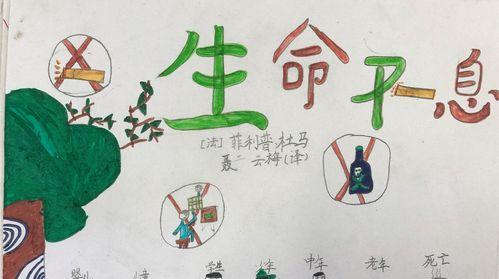 生命不息
[法]菲利普·杜马
聂云梅(译)
婴儿 儿童 学生 少年 中年 老年 死亡